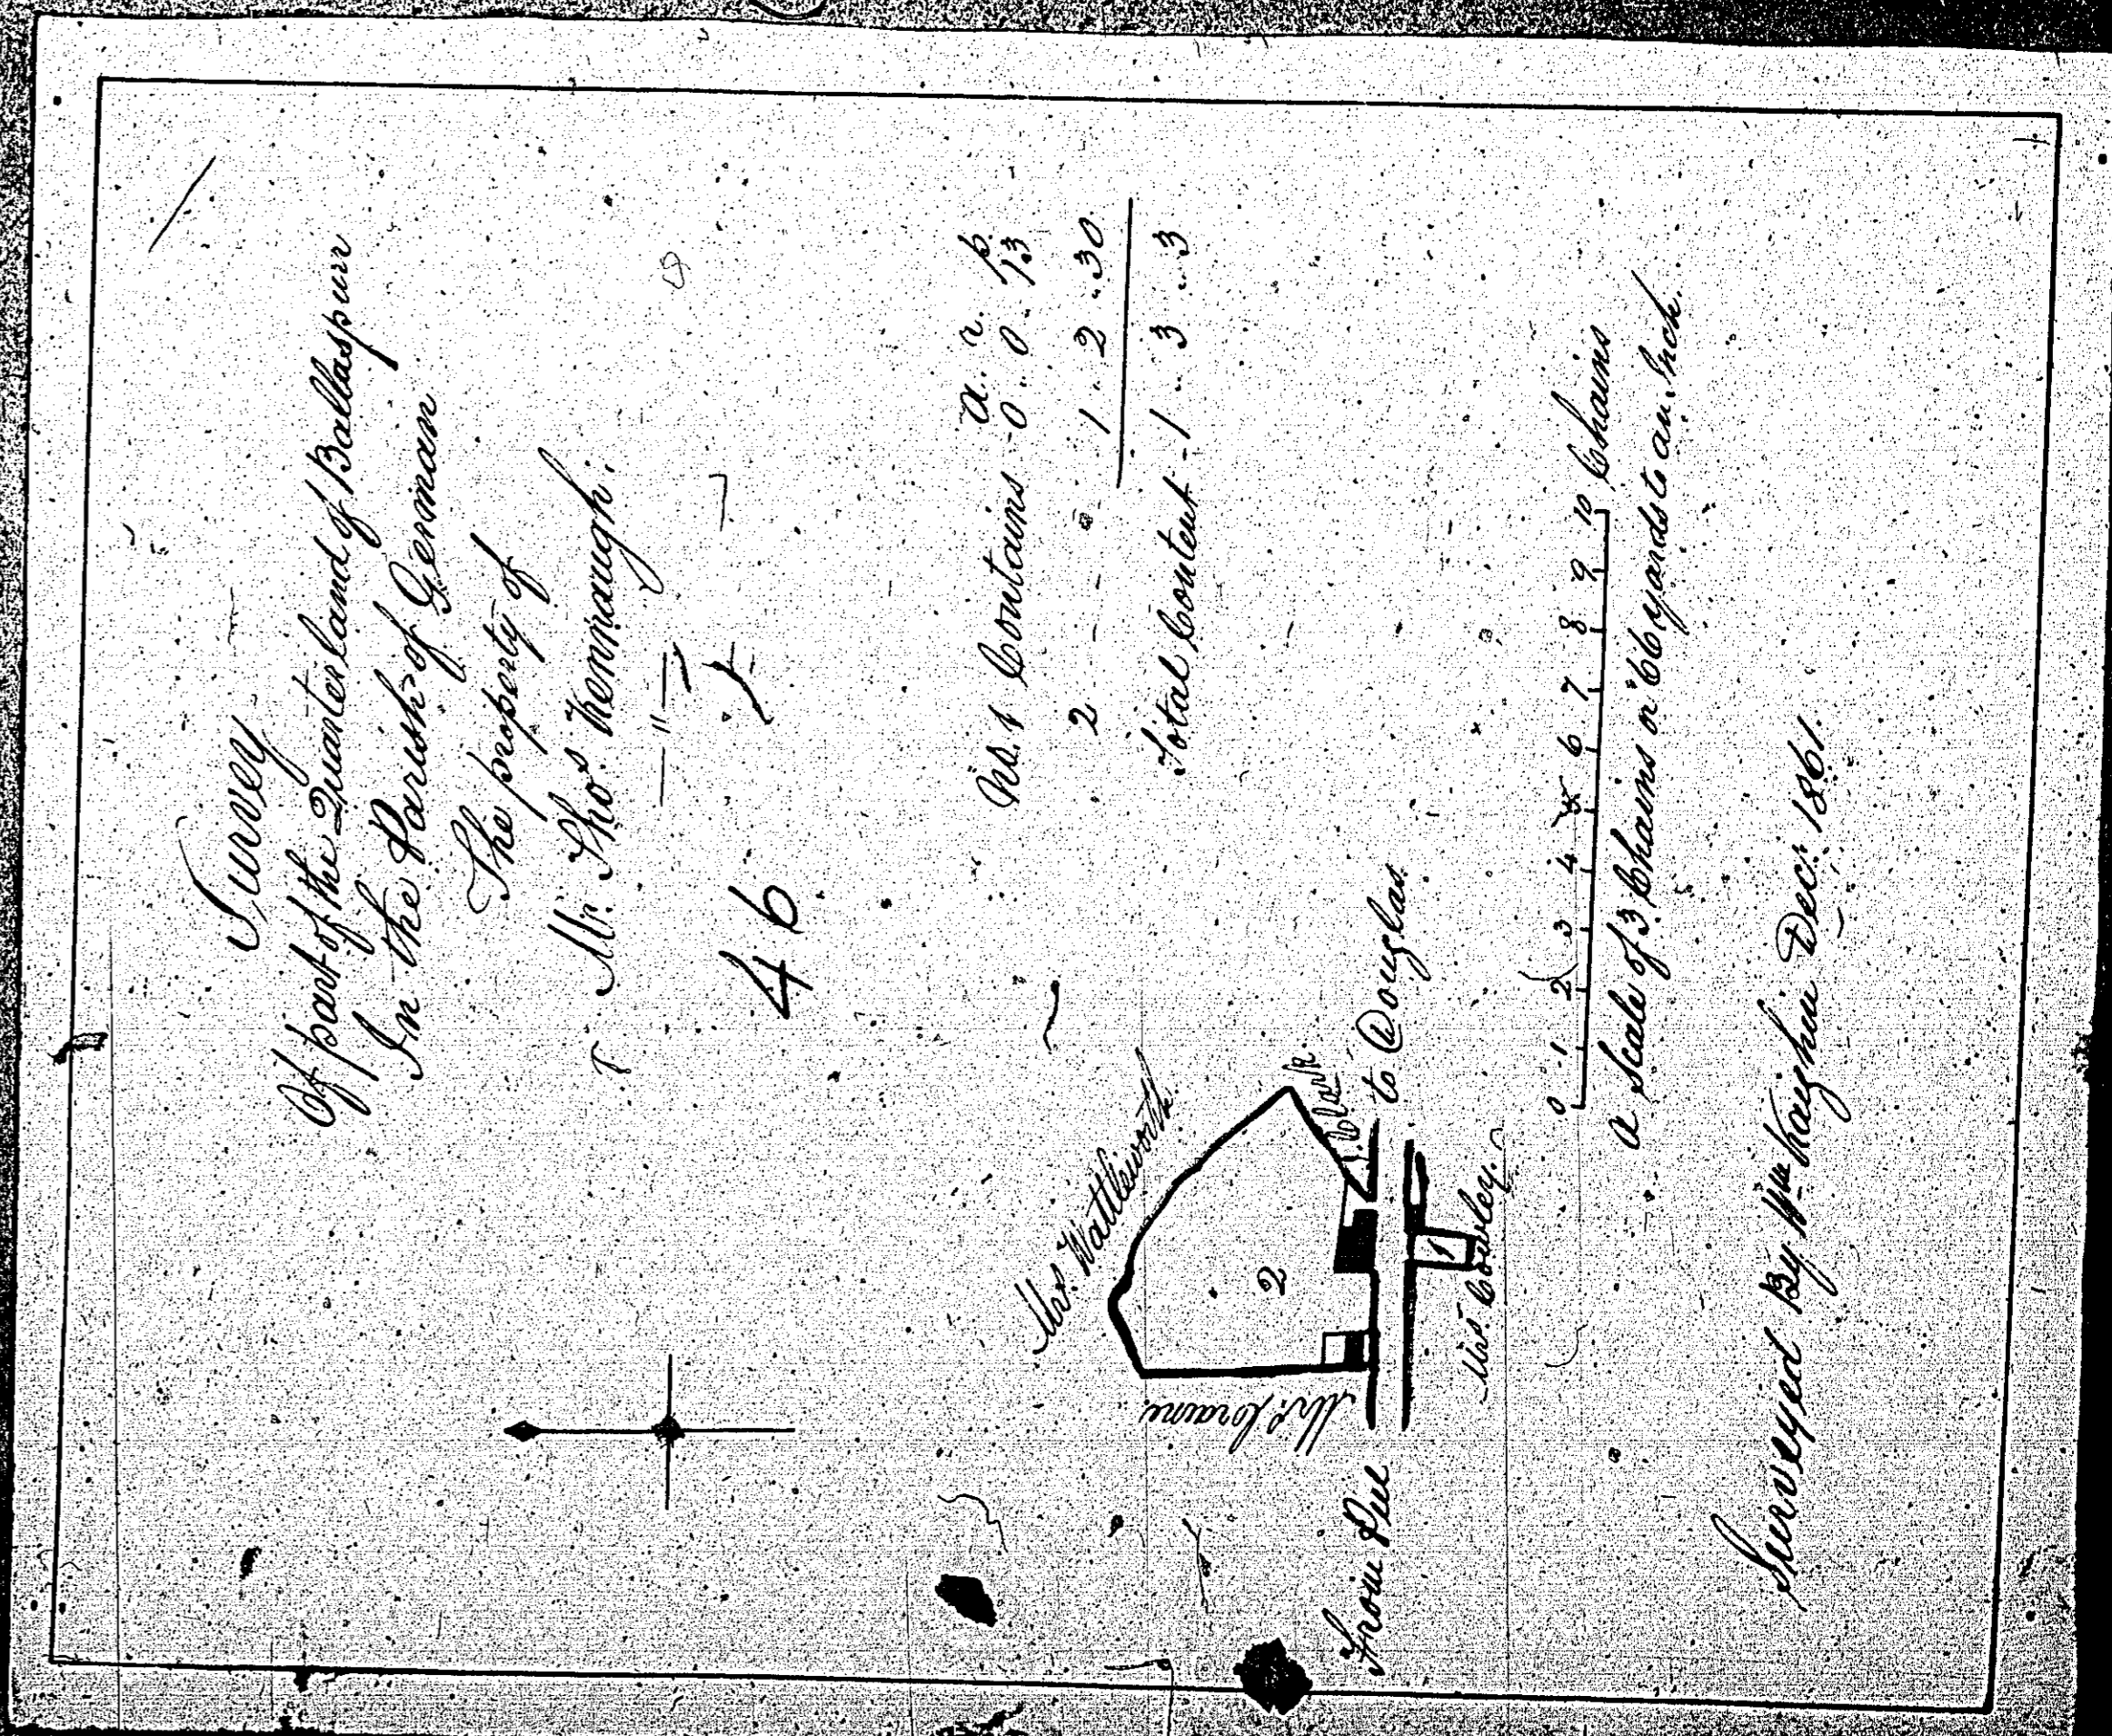 Survey
Of part of the Quarterland of Ballaspurr
In the Parish of German
The property of
Mr. Thos. Kennaugh.
46
a.. r. p.
No. 1 Contains - 0.. 0.. 13
2 - - 1.. 2.. 30
Total Content - 1.. 3.. 3
Mrs. Wattleworth.
Mrs.
2
Clark.
From Peel
to Douglas.
1
Mrs. Cowley.
0 1 2 3 4 5 6 7 8 9 10 Chains
a Scale of 3 Chains or 66 yards to an Inch.
Surveyed By Wm Kaighin Decr. 1861.